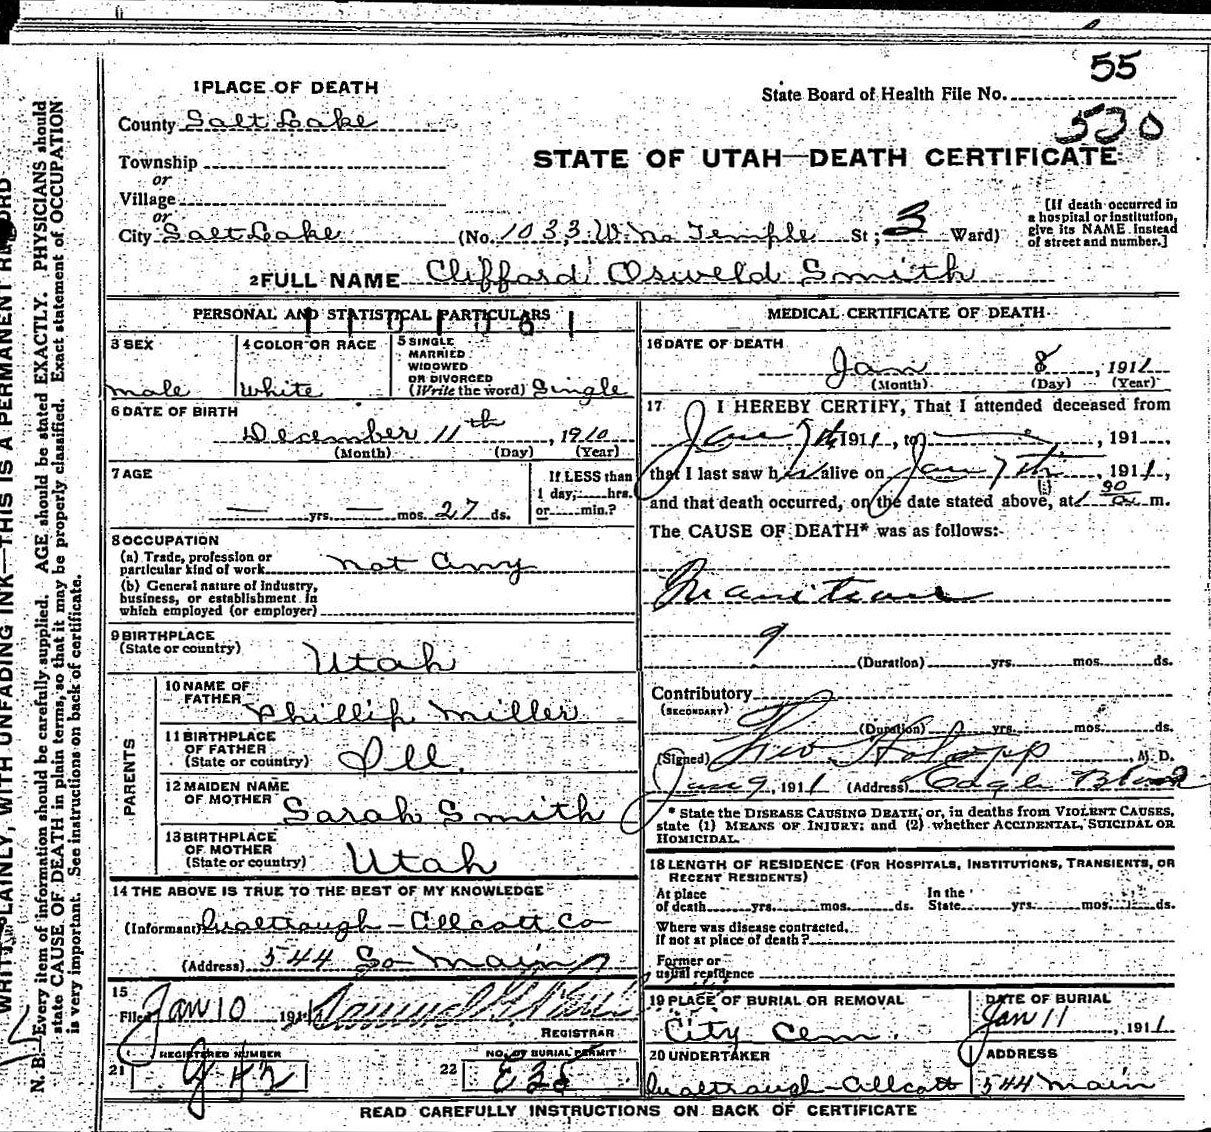 55
1 PLACE OF DEATH
State Board of Health File No.
County Salt Lake
530
STATE OF UTAH—DEATH CERTIFICATE
Township
or
Village
or
City Salt Lake (No. 1033 W. No Temple St; 3 Ward)
[If death occurred in
a hospital or institution,
give its NAME instead
of street and number.]
2 FULL NAME Clifford Osweld Smith
PERSONAL AND STATISTICAL PARTICULARS
3 SEX
male
4 COLOR OR RACE
White
5 SINGLE
MARRIED
WIDOWED
OR DIVORCED
(Write the word) Single
6 DATE OF BIRTH
December 11th, 1910
(Month) (Day) (Year)
7 AGE
— yrs. — mos. 27 ds.
If LESS than
1 day, hrs.
or min.?
8 OCCUPATION
(a) Trade, profession or
particular kind of work not any
(b) General nature of industry,
business, or establishment in
which employed (or employer)
9 BIRTHPLACE
(State or country) Utah
PARENTS
10 NAME OF
FATHER Phillip Miller
11 BIRTHPLACE
OF FATHER
(State or country) Ill.
12 MAIDEN NAME
OF MOTHER Sarah Smith
13 BIRTHPLACE
OF MOTHER
(State or country) Utah
14 THE ABOVE IS TRUE TO THE BEST OF MY KNOWLEDGE
(Informant)
(Address) 544 So Main
15
Filed Jan 10 191
REGISTRAR
REGISTERED NUMBER
21
NO. OF BURIAL PERMIT
22
MEDICAL CERTIFICATE OF DEATH
16 DATE OF DEATH
Jan 8, 1911
(Month) (Day) (Year)
17 I HEREBY CERTIFY, That I attended deceased from
Jan 7th 1911, to —, 191
that I last saw h alive on Jan 7th, 1911,
and that death occurred, on the date stated above, at m.
The CAUSE OF DEATH* was as follows:
?
(Duration) yrs. mos. ds.
Contributory
(SECONDARY)
(Duration) yrs. mos. ds.
(Signed) M. D.
Jan 9, 1911 (Address)
* State the DISEASE CAUSING DEATH, or, in deaths from VIOLENT CAUSES,
state (1) MEANS OF INJURY; and (2) whether ACCIDENTAL, SUICIDAL OR
HOMICIDAL.
18 LENGTH OF RESIDENCE (FOR HOSPITALS, INSTITUTIONS, TRANSIENTS, OR
RECENT RESIDENTS)
At place
of death yrs. mos. ds.
In the
State yrs. mos. ds.
Where was disease contracted,
if not at place of death?
Former or
usual residence
19 PLACE OF BURIAL OR REMOVAL
City Cem.
DATE OF BURIAL
Jan 11, 1911
20 UNDERTAKER
ADDRESS
544 Main
READ CAREFULLY INSTRUCTIONS ON BACK OF CERTIFICATE
WRITE PLAINLY, WITH UNFADING INK—THIS IS A PERMANENT RECORD
N. B.—Every item of information should be carefully supplied. AGE should be stated EXACTLY. PHYSICIANS should
state CAUSE OF DEATH in plain terms, so that it may be properly classified. Exact statement of OCCUPATION
is very important. See instructions on back of certificate.